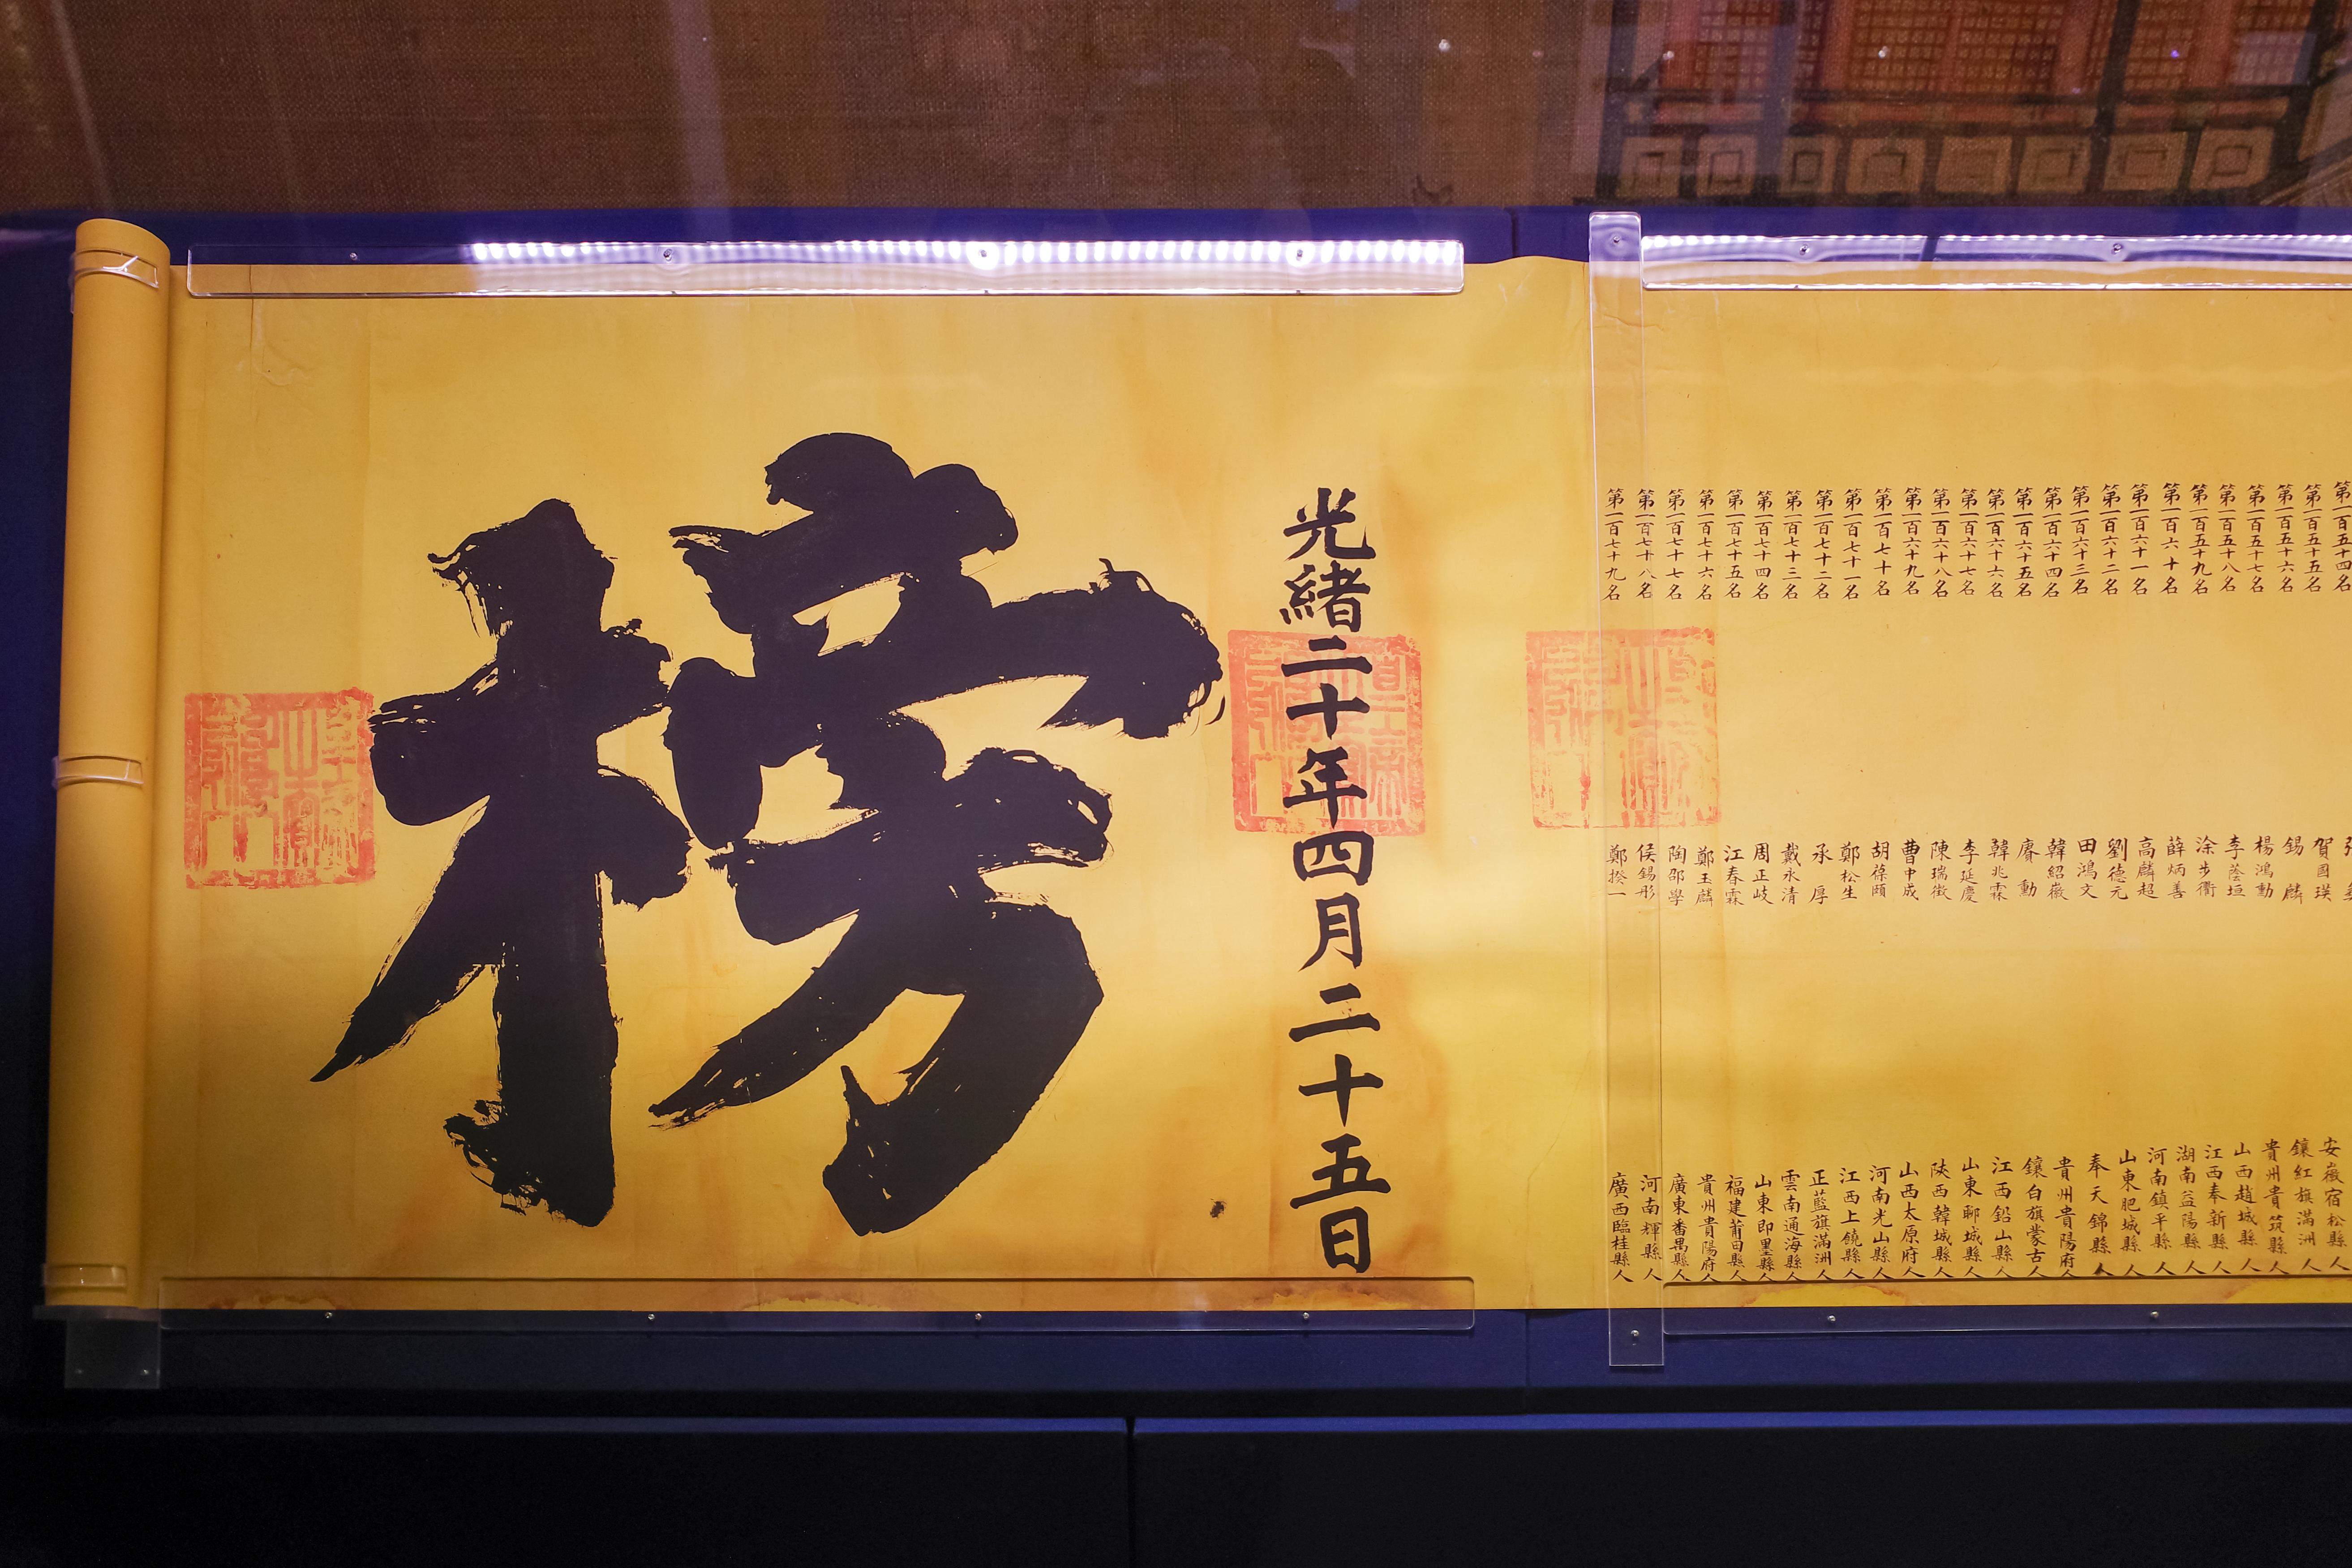 第一百五十四名
第一百五十五名 賀國瑛 安徽宿松縣人
第一百五十六名 錫麟 鑲紅旗滿洲人
第一百五十七名 楊鴻勳 貴州貴筑縣人
第一百五十八名 李蔭垣 山西趙城縣人
第一百五十九名 涂步衢 江西奉新縣人
第一百六十名 薛炳善 湖南益陽縣人
第一百六十一名 高麟超 河南鎮平縣人
第一百六十二名 劉德元 山東肥城縣人
第一百六十三名 田鴻文 奉天錦縣人
第一百六十四名 韓紹徽 貴州貴陽府人
第一百六十五名 睿勳 鑲白旗蒙古人
第一百六十六名 韓兆霖 江西鉛山縣人
第一百六十七名 李延慶 山東聊城縣人
第一百六十八名 陳瑞徵 陝西韓城縣人
第一百六十九名 曹中成 山西太原府人
第一百七十名 胡葆頤 河南光山縣人
第一百七十一名 鄭松生 江西上饒縣人
第一百七十二名 承厚 正藍旗滿洲人
第一百七十三名 戴永清 雲南通海縣人
第一百七十四名 周正岐 山東即墨縣人
第一百七十五名 江春霖 福建莆田縣人
第一百七十六名 鄭玉麟 貴州貴陽府人
第一百七十七名 陶邵學 廣東番禺縣人
第一百七十八名 侯錫彤 河南輝縣人
第一百七十九名 鄭揆一 廣西臨桂縣人
光緒二十年四月二十五日
榜